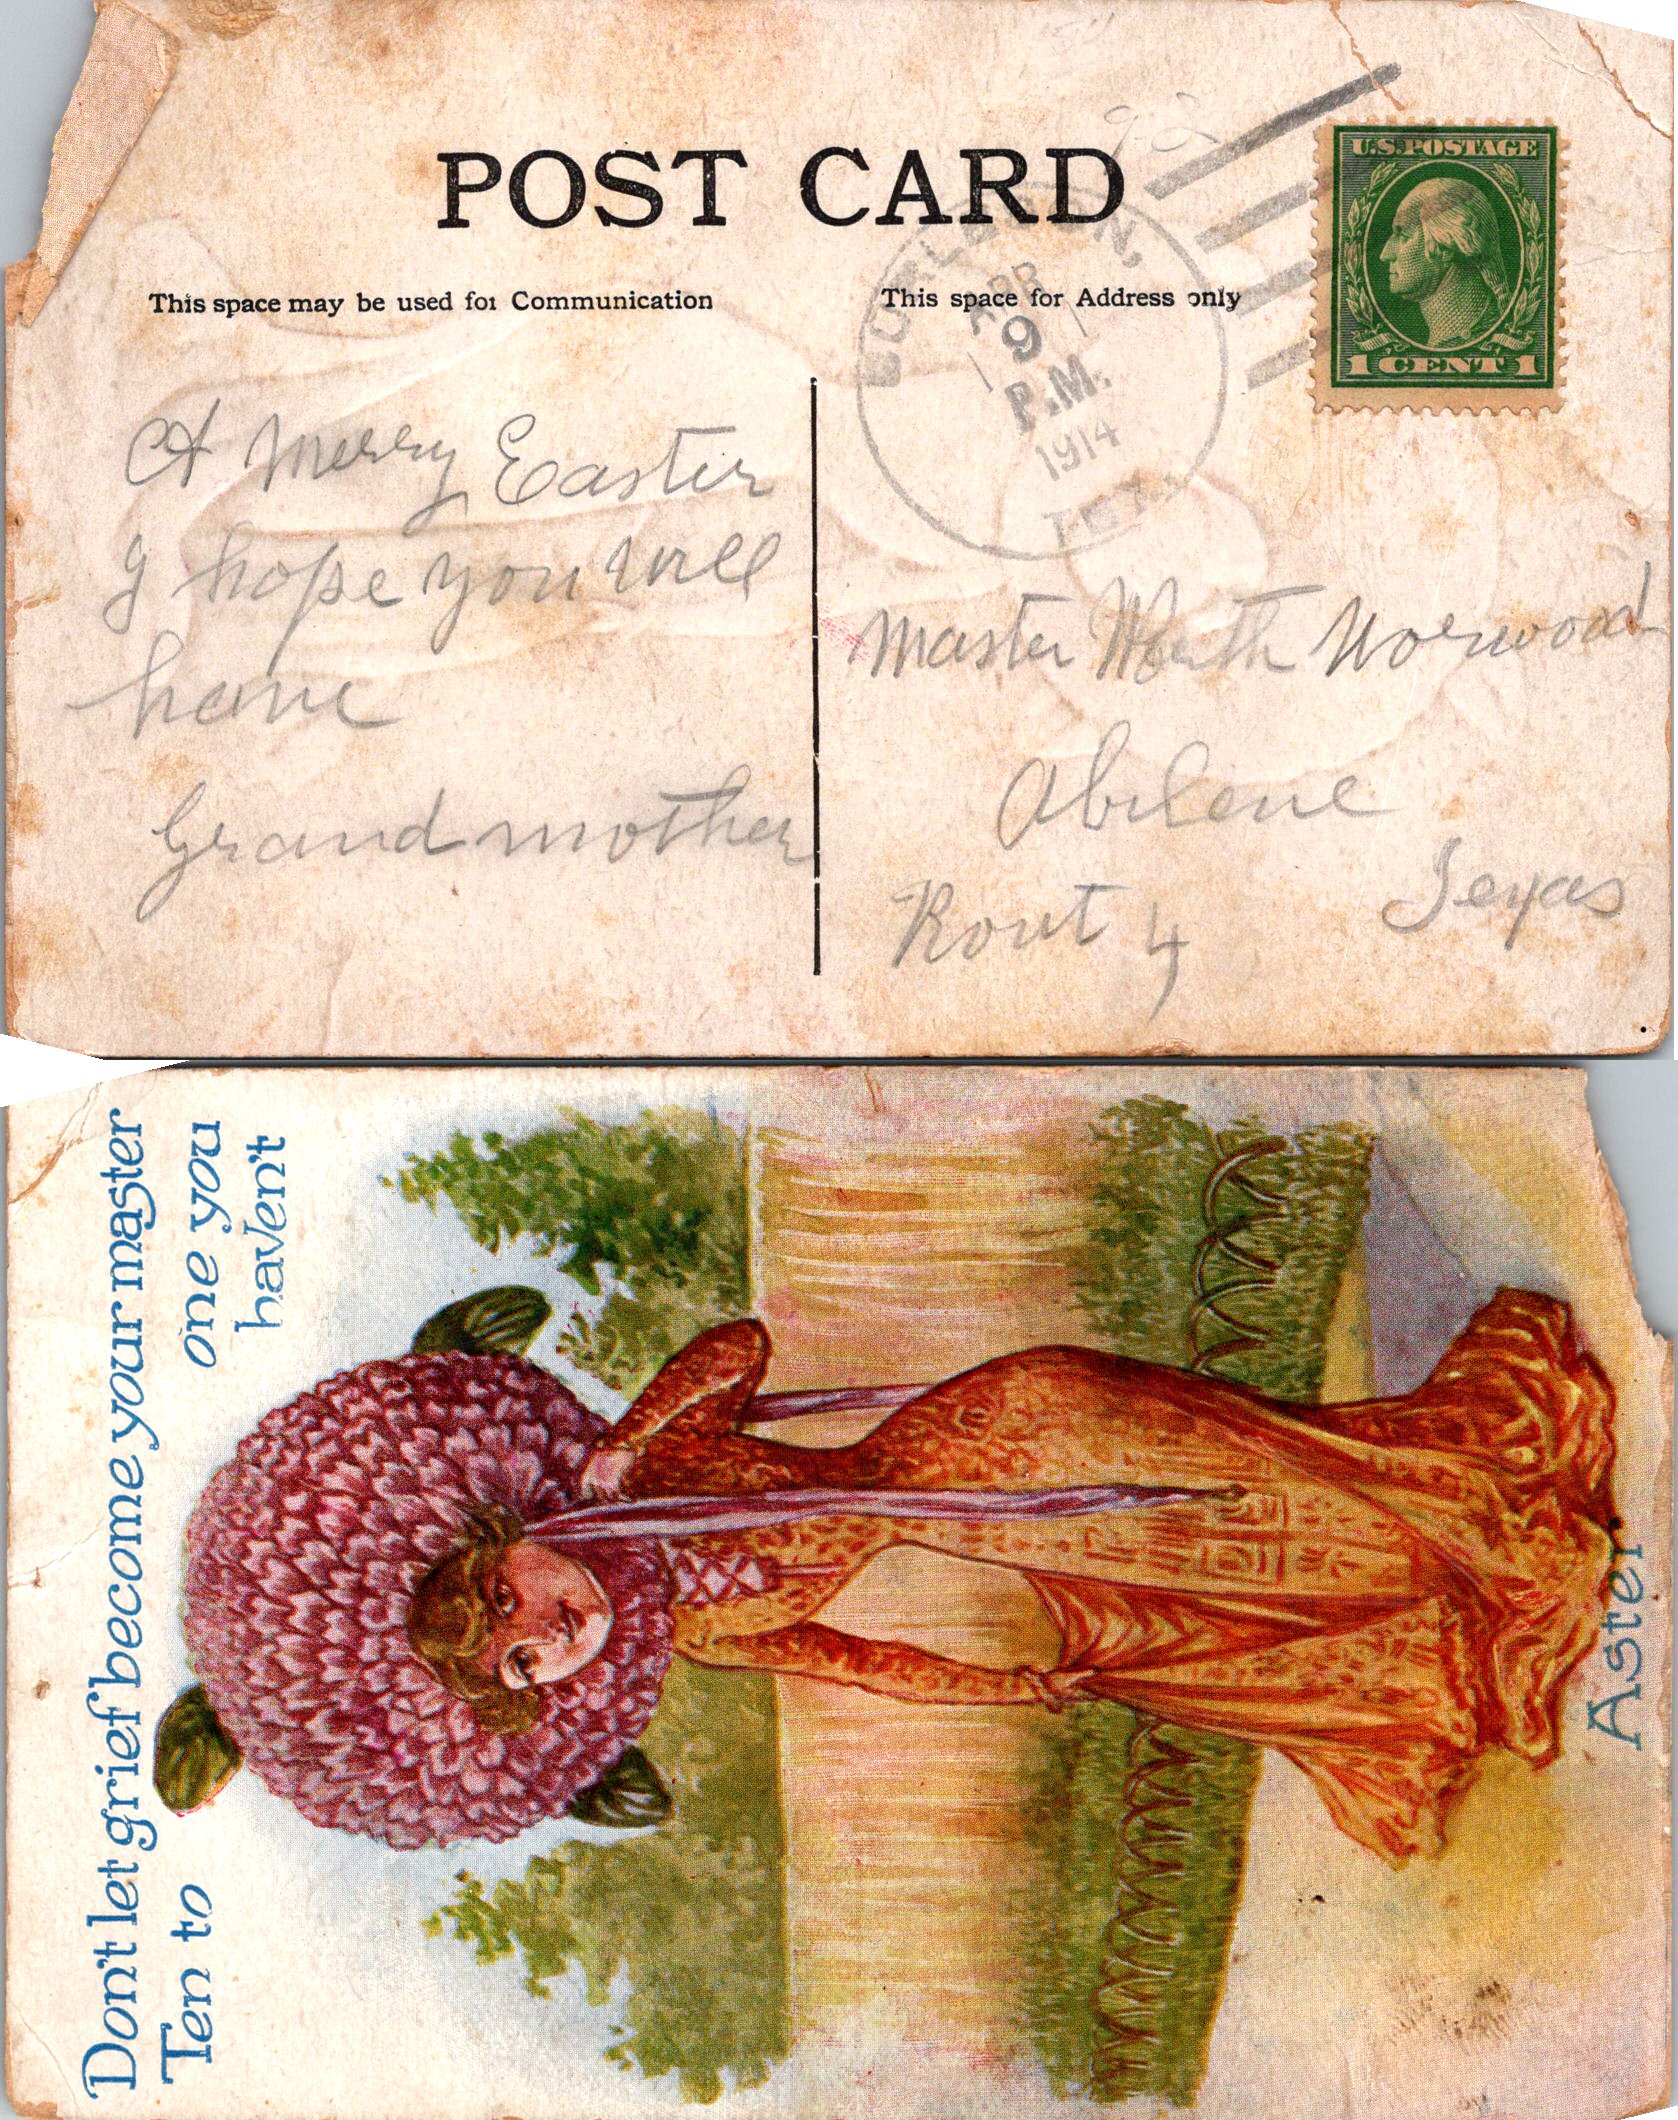 POST CARD
U.S. POSTAGE
1 CENT 1
This space may be used for Communication
This space for Address only
BURLESON,
APR
9
P.M.
1914
TEX.
A Merry Easter
I hope you will
have
Grandmother
Master Worth Norwood
Abilene
Texas
Rout 4
Don't let grief become your master
Ten to one you
haven't
Aster